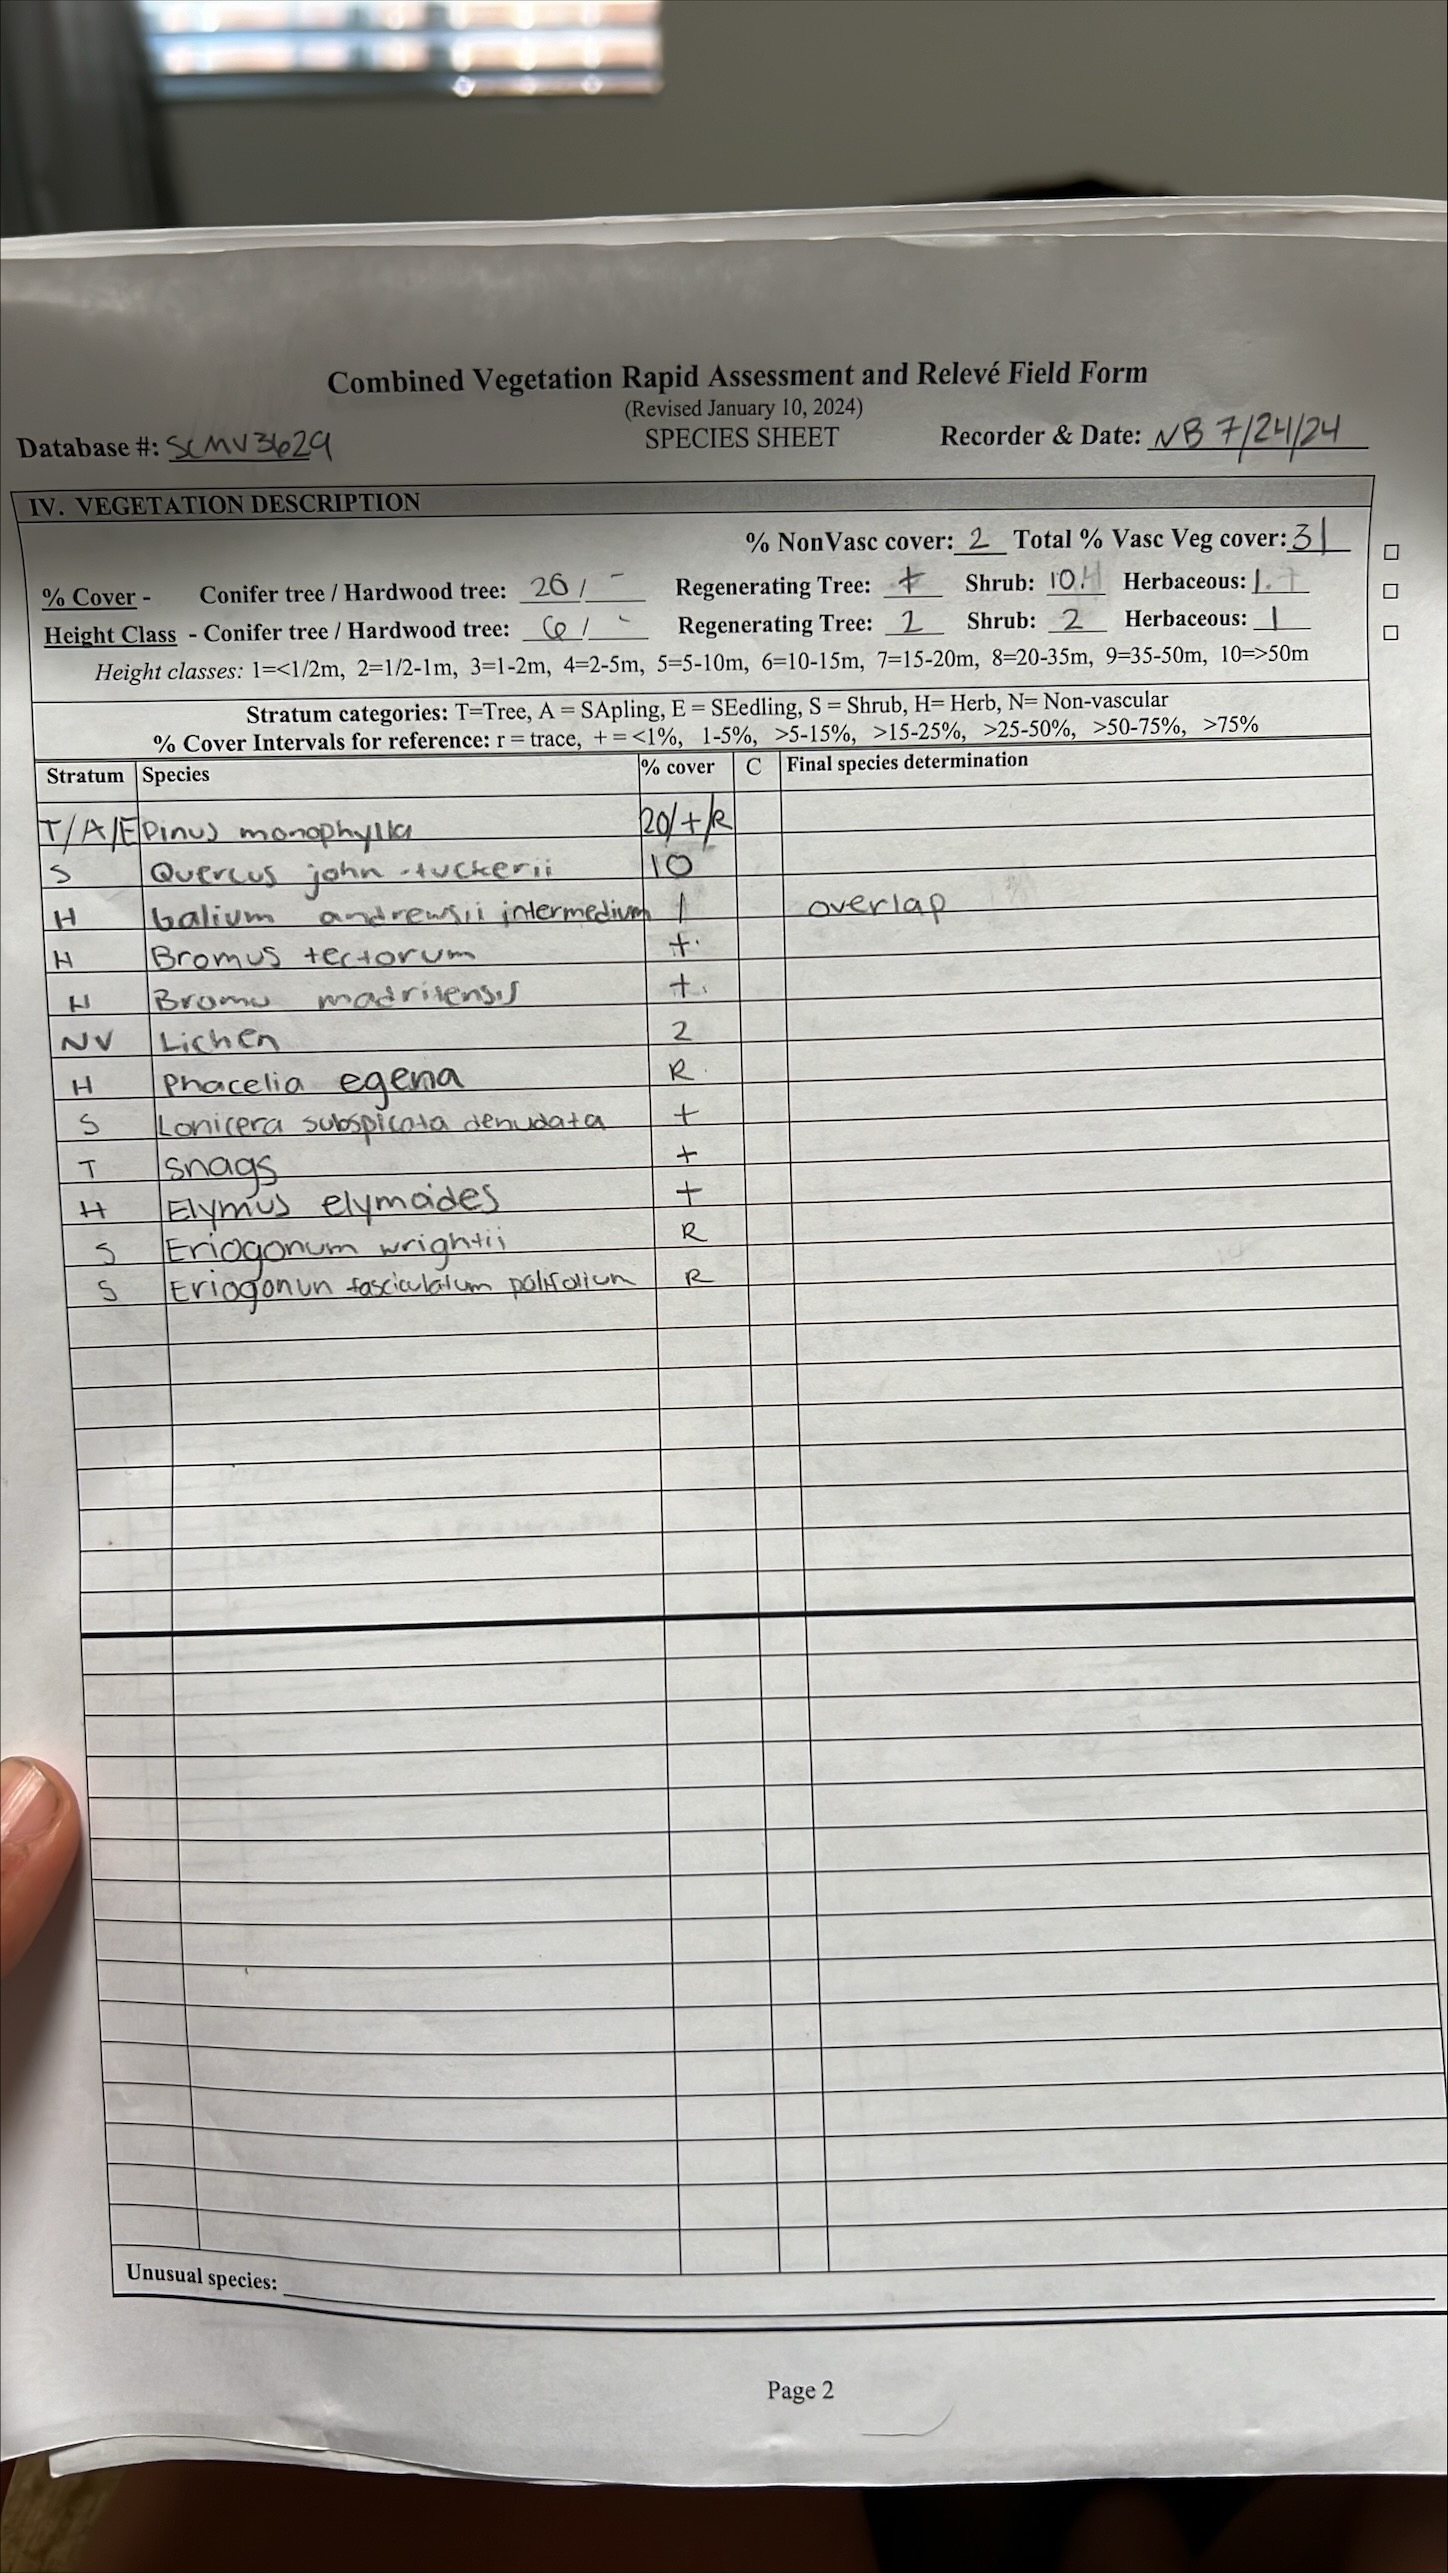 Combined Vegetation Rapid Assessment and Relevé Field Form
(Revised January 10, 2024)
Database #: SCMV3629 SPECIES SHEET Recorder & Date: NB 7/24/24
IV. VEGETATION DESCRIPTION
% NonVasc cover: 2 Total % Vasc Veg cover: 31
% Cover - Conifer tree / Hardwood tree: 20 / - Regenerating Tree: + Shrub: 10. Herbaceous: 1.
Height Class - Conifer tree / Hardwood tree: 6 / - Regenerating Tree: 2 Shrub: 2 Herbaceous: 1
Height classes: 1=<1/2m, 2=1/2-1m, 3=1-2m, 4=2-5m, 5=5-10m, 6=10-15m, 7=15-20m, 8=20-35m, 9=35-50m, 10=>50m
Stratum categories: T=Tree, A = SApling, E = SEedling, S = Shrub, H= Herb, N= Non-vascular
% Cover Intervals for reference: r = trace, + = <1%, 1-5%, >5-15%, >15-25%, >25-50%, >50-75%, >75%
Stratum Species % cover C Final species determination
T/A/E Pinus monophylla 20/+/R
S Quercus john-tuckerii 10
H Galium andrewsii intermedium 1 overlap
H Bromus tectorum +
H Bromus madritensis +
NV Lichen 2
H Phacelia egena R
S Lonicera subspicata denudata +
T snags +
H Elymus elymoides +
S Eriogonum wrightii R
S Eriogonun fasciculatum polifolium R
Unusual species:
Page 2